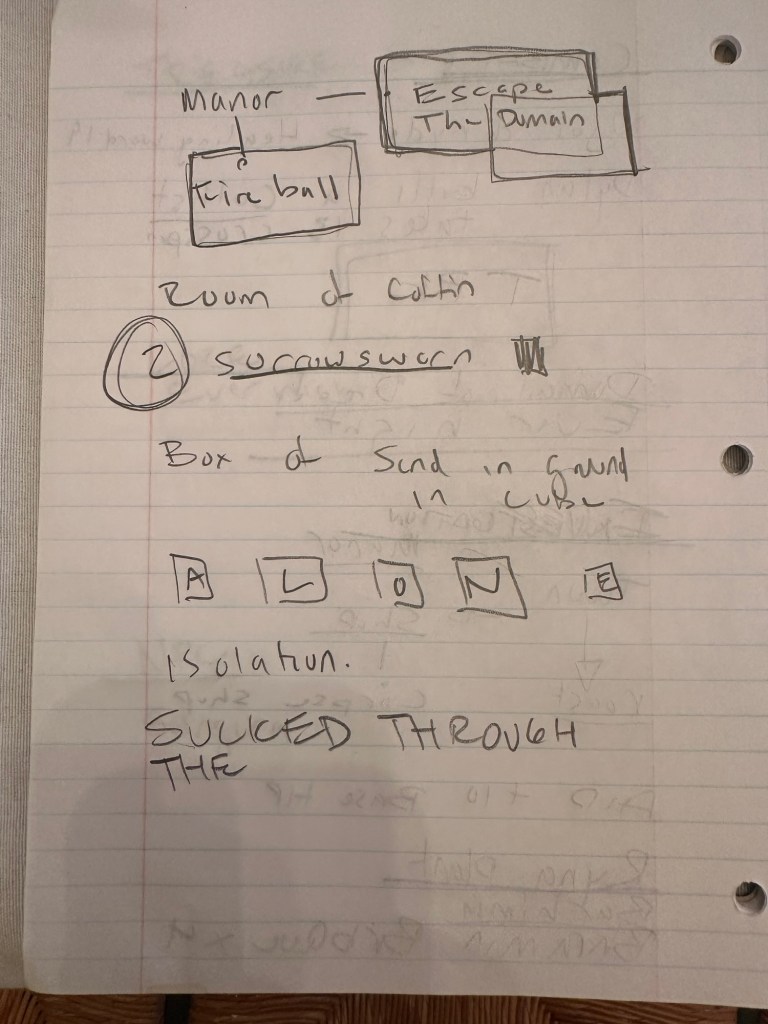 Manor — Escape
The Domain
Fireball
Room of Coffin
2 sorrowsworn
Box of Sand in ground
in cube
A L O N E
isolation.
SUCKED THROUGH
THE